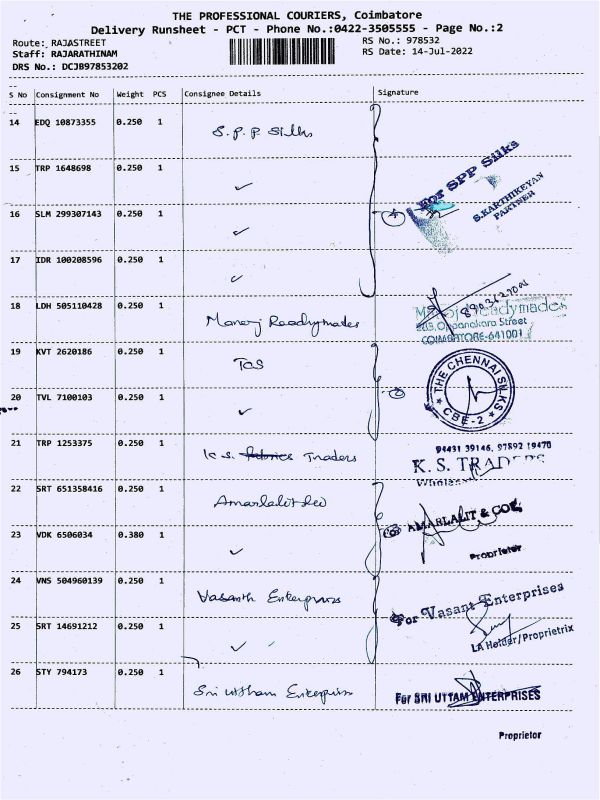 THE PROFESSIONAL COURIERS, Coimbatore
Delivery Runsheet - PCT - Phone No.:0422-3505555 - Page No.:2
Route: RAJASTREET
RS No.: 978532
Staff: RAJARATHINAM
RS Date: 14-Jul-2022
DRS No.: DCJB97853202
S No Consignment No Weight PCS Consignee Details Signature
14 EDQ 10873355 0.250 1 S.P.P Silks
15 TRP 1648698 0.250 1 ✓
For SPP Silks
S.KARTHIKEYAN
PARTNER
16 SLM 299307143 0.250 1 ✓ 4
17 IDR 100208596 0.250 1 ✓
18 LDH 505110428 0.250 1 Manoj Readymades
Readymades
Street
COIMBATORE-641001
19 KVT 2620186 0.250 1 TCS
THE CHENNAI SILKS
CBE-2
20 TVL 7100103 0.250 1 ✓
21 TRP 1253375 0.250 1 K.S. Fabrics Traders
94431 39146, 97892 19470
K. S. TRADERS
22 SRT 651358416 0.250 1
For AMARLALIT & CO.
Proprietor
23 VDK 6506034 0.380 1 ✓
24 VNS 504960139 0.250 1 Vasanth Enterprises
For Vasant Enterprises
LA Holder/Proprietrix
25 SRT 14691212 0.250 1 ✓
26 STY 794173 0.250 1 Sri Uttham Enterprises
For SRI UTTAM ENTERPRISES
Proprietor